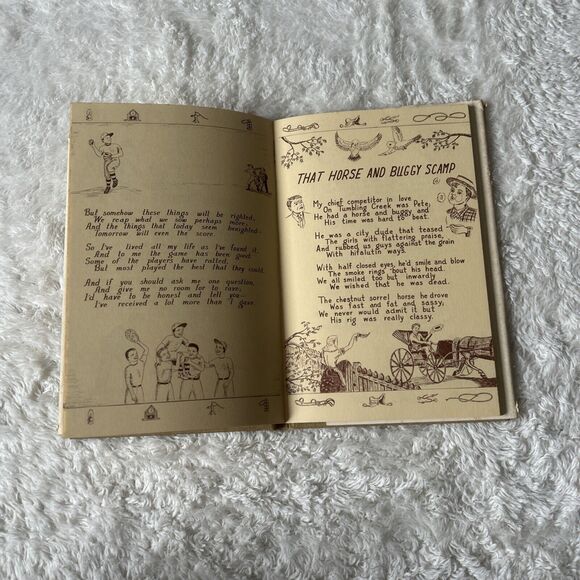 But somehow these things will be righted,
We reap what we sow perhaps more,
And the things that today seem benighted
Tomorrow will even the score.
So I've lived all my life as I've found it,
And to me the game has been good
Some of the players have rallied,
But most played the best that they could.
And if you should ask me one question,
And give me no room for to love,
I'd have to be honest and tell you
I've received a lot more than I gave.
THAT HORSE AND BUGGY SCAMP
My chief competitor in love
On Tumbling Creek was Pete,
He had a horse and buggy and
His time was hard to beat.
He was a city dude that teased
The girls with flattering praise,
And rubbed us guys against the grain
With hifalutin ways.
With half closed eyes, he'd smile and blow
The smoke rings 'bout his head.
We all smiled too but inwardly
We wished that he was dead.
The chestnut sorrel horse he drove
Was fast and fat and sassy,
We never would admit it but
His rig was really classy.